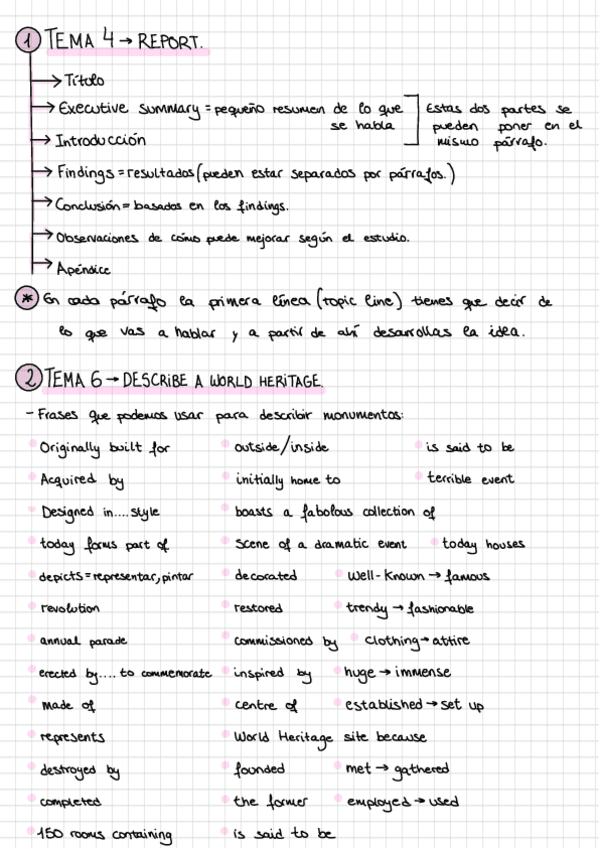 1 TEMA 4 → REPORT.
→ Título
→ Executive summary = pequeño resumen de lo que se habla
→ Introducción
Estas dos partes se pueden poner en el mismo párrafo.
→ Findings = resultados (pueden estar separados por párrafos.)
→ Conclusión = basados en los findings.
→ Observaciones de cómo puede mejorar según el estudio.
→ Apéndice
* En cada párrafo la primera línea (topic line) tienes que decir de
lo que vas a hablar y a partir de ahí desarrollas la idea.
2 TEMA 6 → DESCRIBE A WORLD HERITAGE.
- Frases que podemos usar para describir monumentos:
• Originally built for • outside/inside • is said to be
• Acquired by • initially home to • terrible event
• Designed in.... style • boasts a fabolous collection of
• today forms part of • scene of a dramatic event • today houses
• depicts = representar, pintar • decorated • well-known → famous
• revolution • restored • trendy → fashionable
• annual parade • commissioned by • clothing → attire
• erected by.... to commemorate • inspired by • huge → immense
• made of • centre of • established → set up
• represents • World Heritage site because
• destroyed by • founded • met → gathered
• completed • the former • employed → used
• 150 rooms containing • is said to be